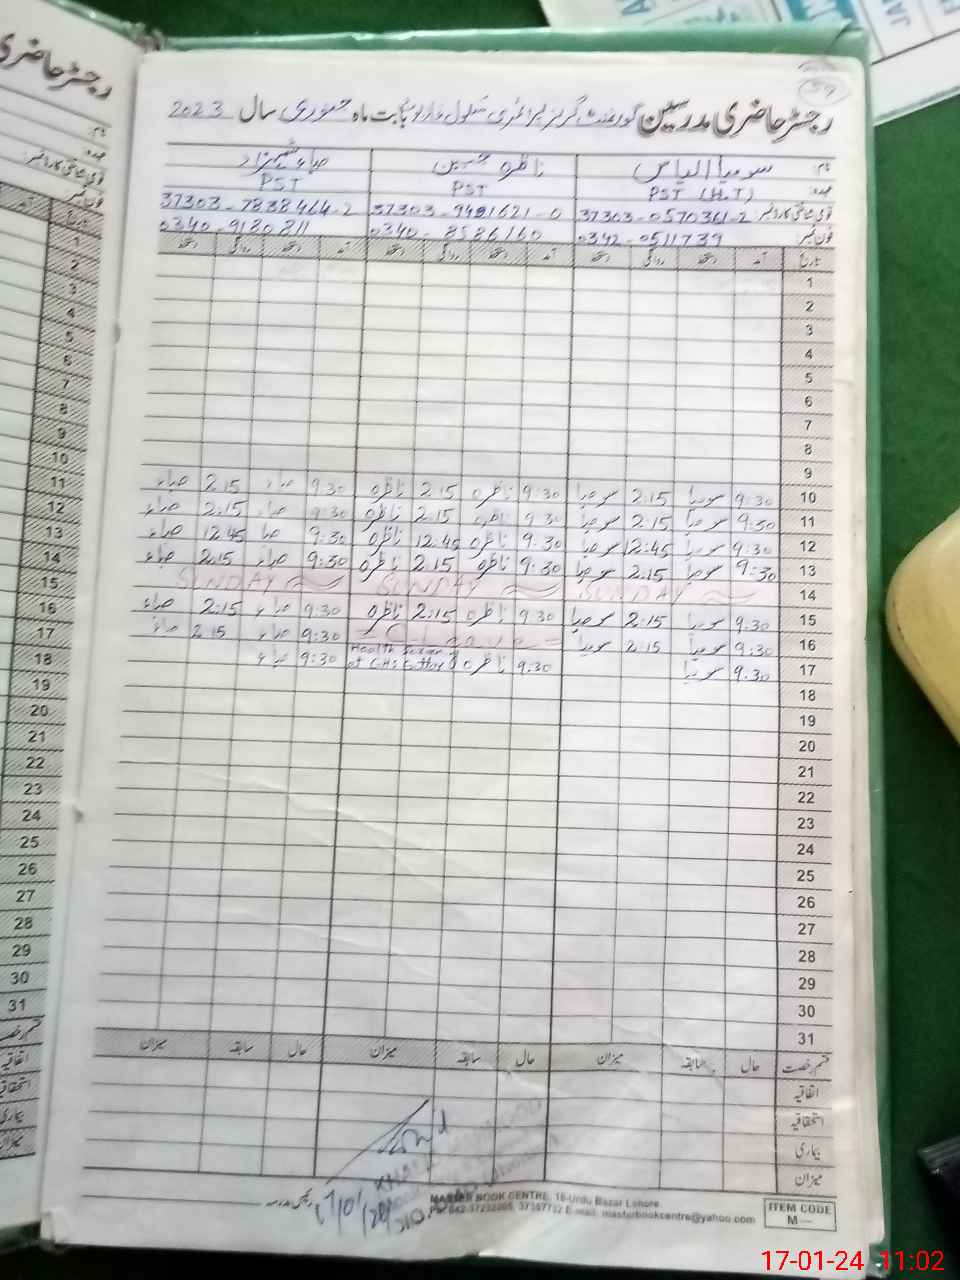 59
رجسٹر حاضری مدرسین گورنمنٹ گرلز پرائمری سکول بابت ماہ جنوری سال 2023
نام سومیا الیاس ناظرہ حسین صباء شہزاد
عہدہ PST (H.T) PST PST
قومی شناختی کارڈ نمبر 37303-0570361-2 37303-9491621-0 37303-7838464-2
فون نمبر 0342-0511739 0340-8586160 0340-9180811
تاریخ آمد دستخط روانگی دستخط آمد دستخط روانگی دستخط آمد دستخط روانگی دستخط
1
2
3
4
5
6
7
8
9
10 9:30 سومیا 2:15 سومیا 9:30 ناظرہ 2:15 ناظرہ 9:30 صباء 2:15 صباء
11 9:30 سومیا 2:15 سومیا 9:30 ناظرہ 2:15 ناظرہ 9:30 صباء 2:15 صباء
12 9:30 سومیا 12:45 سومیا 9:30 ناظرہ 12:45 ناظرہ 9:30 صباء 12:45 صباء
13 9:30 سومیا 2:15 سومیا 9:30 ناظرہ 2:15 ناظرہ 9:30 صباء 2:15 صباء
14 SUNDAY SUNDAY SUNDAY
15 9:30 سومیا 2:15 سومیا 9:30 ناظرہ 2:15 ناظرہ 9:30 صباء 2:15 صباء
16 9:30 سومیا 2:15 سومیا Leave 9:30 صباء 2:15 صباء
17 9:30 سومیا 9:30 ناظرہ Health at GHS 9:30 صباء
18
19
20
21
22
23
24
25
26
27
28
29
30
31
قسم رخصت حال سابقہ میزان حال سابقہ میزان حال سابقہ میزان
اتفاقیہ
استحقاقیہ
بیماری
میزان
رئیس مدرسہ
MASTER BOOK CENTRE, 18-Urdu Bazar Lahore.
E-mail: masterbookcentre@yahoo.com
ITEM CODE
M—
رجسٹر حاضری
نام
عہدہ
قومی شناختی کارڈ نمبر
فون نمبر
1
2
3
4
5
6
7
8
9
10
11
12
13
14
15
16
17
18
19
20
21
22
23
24
25
26
27
28
29
30
31
قسم رخصت
اتفاقیہ
استحقاقیہ
بیماری
میزان
17-01-24 11:02